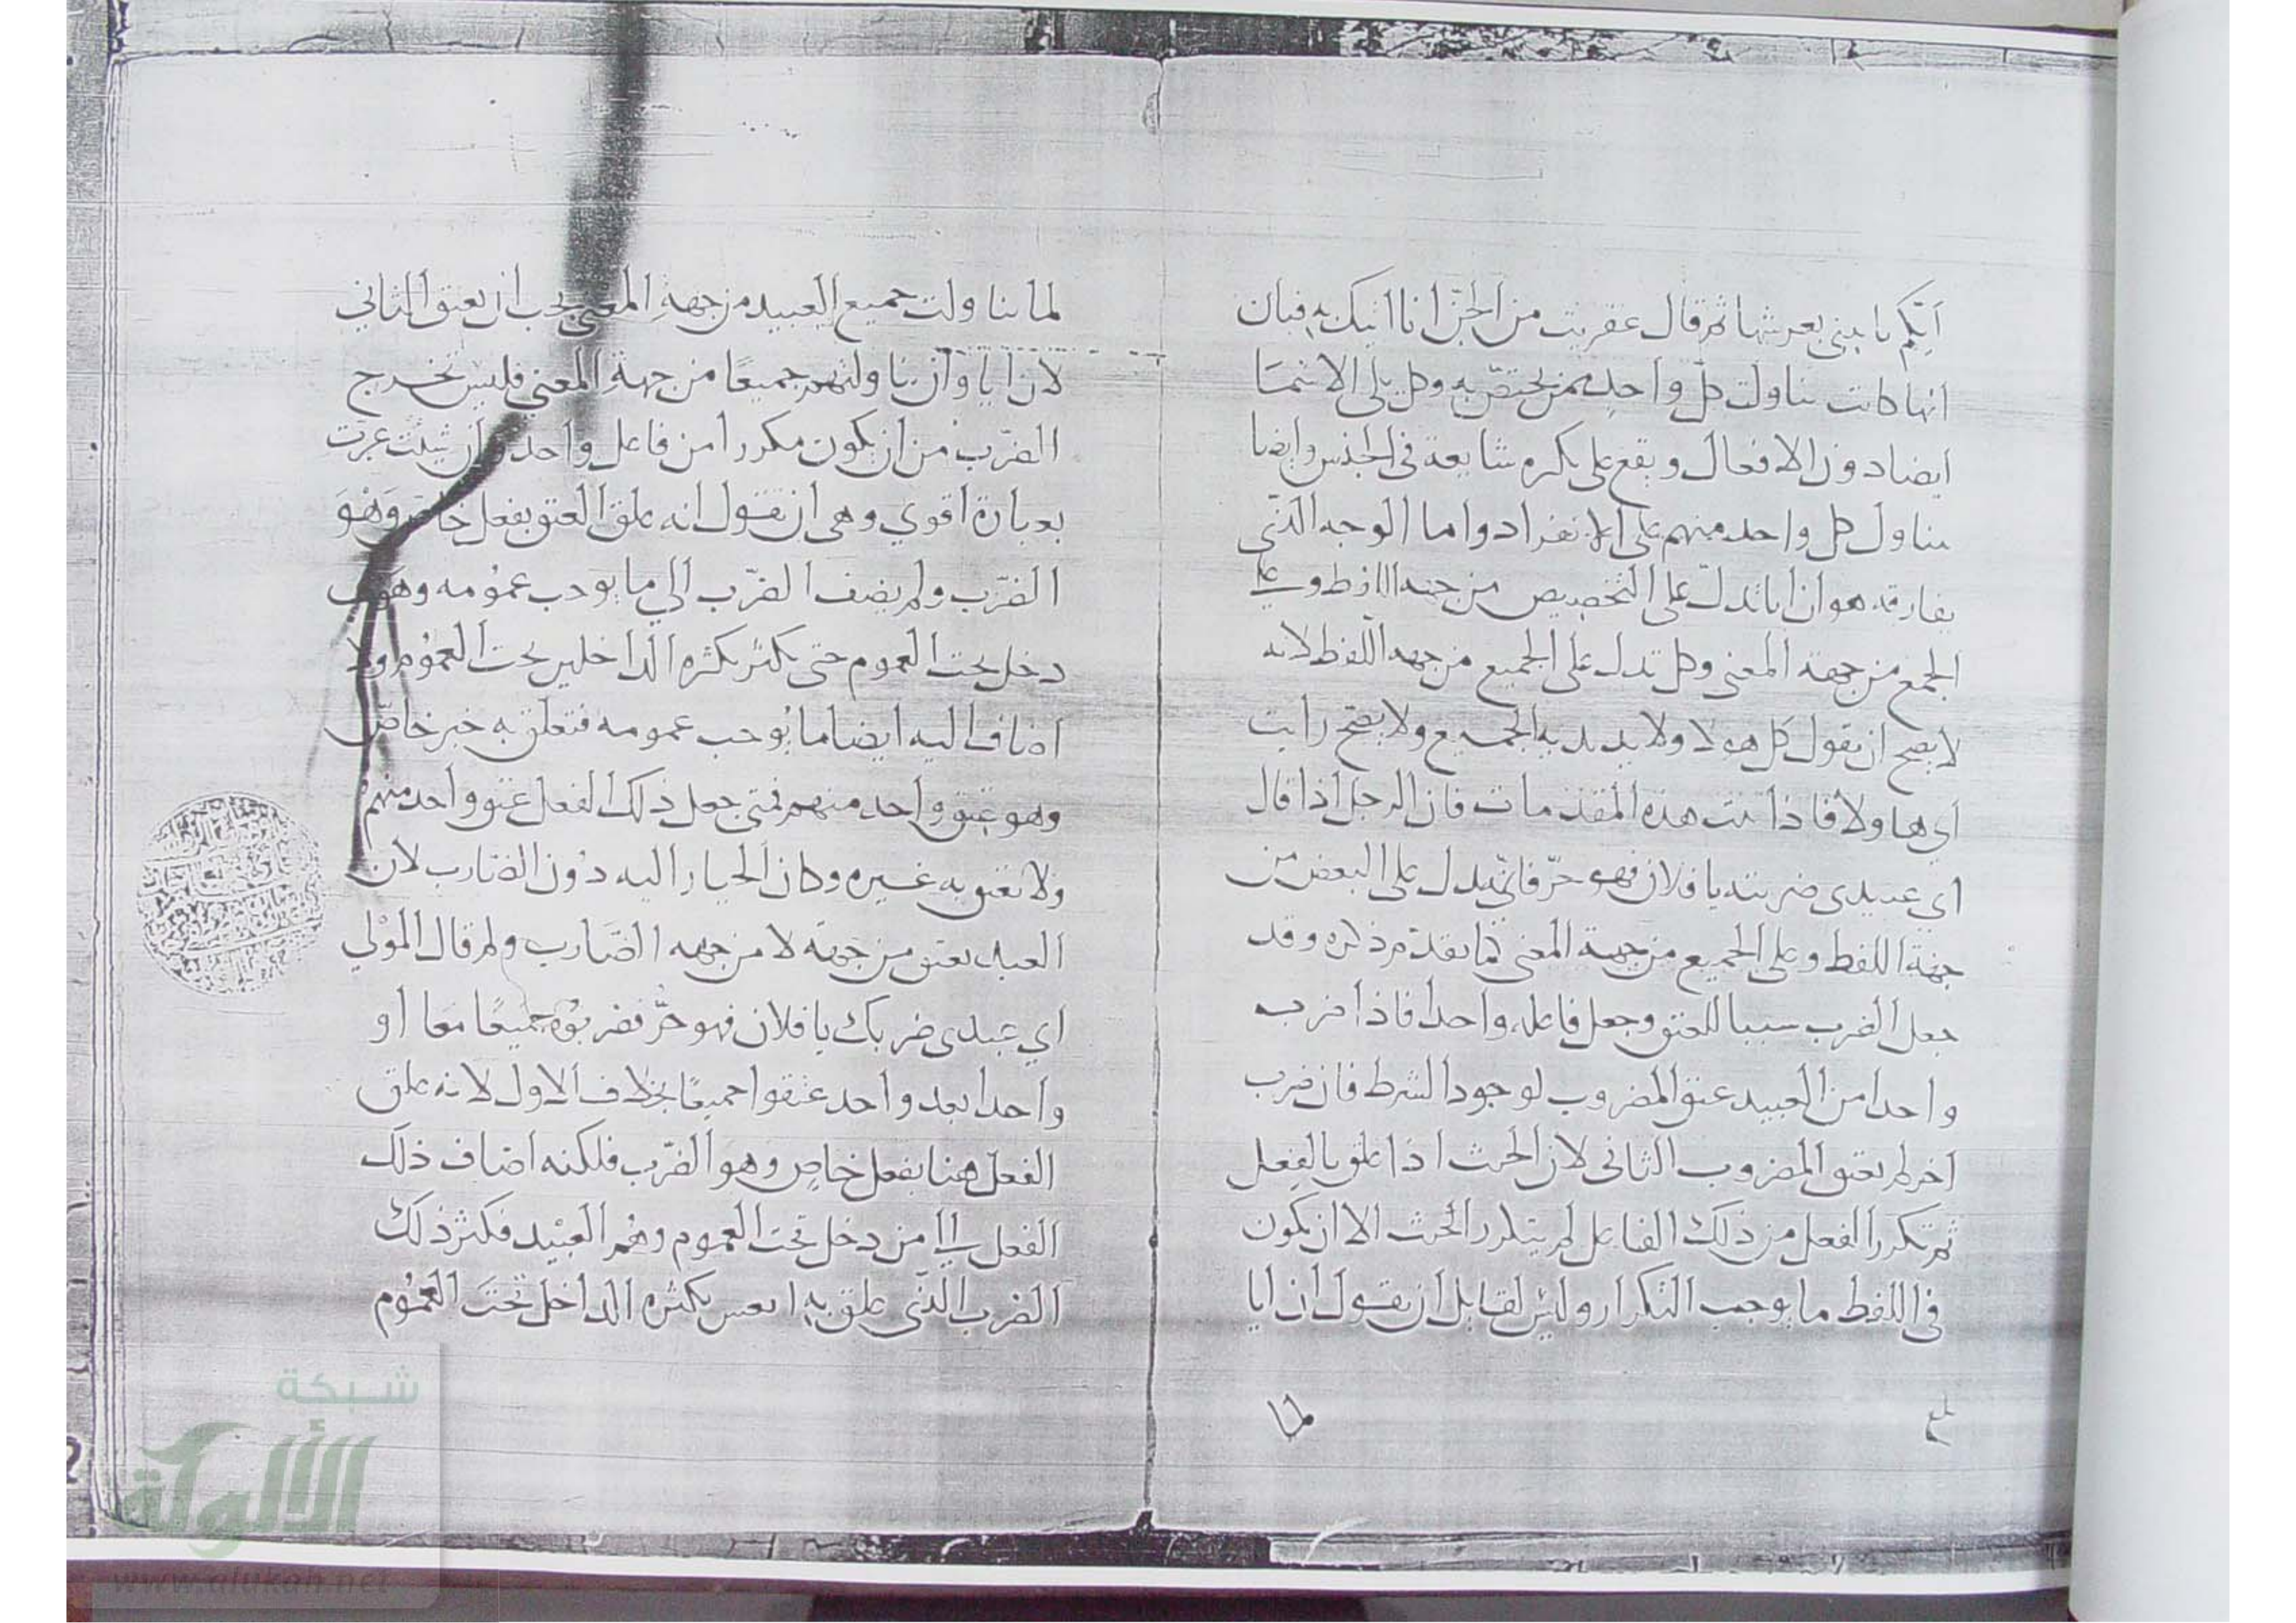 أيكم يأتيني بعرشها ثم قال عفريت من الجن أنا آتيك به فبان
انها كانت تناولت كل واحد ممن يختص به وكل يلي الاسما
ايضا دون الافعال ويقع على نكره شايعة في الجنس وايضا
تناول كل واحد منهم على الانفراد واما الوجه الذي
يفارقه هو ان ايا تدل على التخصيص من جهه اللفظ وعلى
الجمع من جهة المعنى وكل تدل على الجميع من جهه اللفظ لانه
لا يصح ان تقول كل هولا ولا يريد به الجميع ولا يصح رايت
اي هاولا فاذا ثبت هذه المقدمات فان الرجل اذا قال
اي عبيدي ضربته يا فلان فهو حر فاي تدل على البعض من
جهة اللفظ وعلى الجميع من جهة المعنى لما تقدم ذكره وقد
جعل الضرب سببا للعتق وجعل فاعله واحدا فاذا ضرب
واحدا من العبيد عتق المضروب لوجود الشرط فان ضرب
اخر لم يعتق المضروب الثاني لان الحنث اذا علق بالفعل
ثم تكرر الفعل من ذلك الفاعل لم يتكرر الحنث الا ان يكون
في اللفظ ما يوجب التكرار وليس لقايل ان يقول ان ايا
بلغ
لما
لما تناولت جميع العبيد من جهة المعنى يجب ان يعتق الثاني
لان ايا وان تناولتهم جميعًا من جهة المعنى فليس تخرج
الضرب من ان يكون مكررا من فاعل واحد وان شئت عبرت
بعبارة اقوي وهي ان تقول انه علق العتق بفعل خاص وهو
الضرب ولم يضف الضرب الي ما يوجب عمومه وهو
دخل تحت العموم حتى يكثر بكثره الداخلين تحت العموم ولا
اضاف اليه ايضا ما يوجب عمومه فتعلق به خبر خاص
وهو عتق واحد منهم فمتى جعل ذلك الفعل عتق واحد منهم
ولا يعتق به غيره وكان الخيار اليه دون الضارب لان
العبد يعتق من جهته لا من جهه الضارب ولو قال المولي
اي عبيدي ضربك يا فلان فهو حر فضربوه جميعًا معا او
واحدا بعد واحد عتقوا جميعًا بخلاف الاول لانه علق
الفعل هنا بفعل خاص وهو الضرب فلكنه اضاف ذلك
الفعل الي من دخل تحت العموم وهم العبيد فكثر ذلك
الضرب الذي علق به بكثره الداخل تحت العموم
شبكة
الألوكة
www.alukah.net